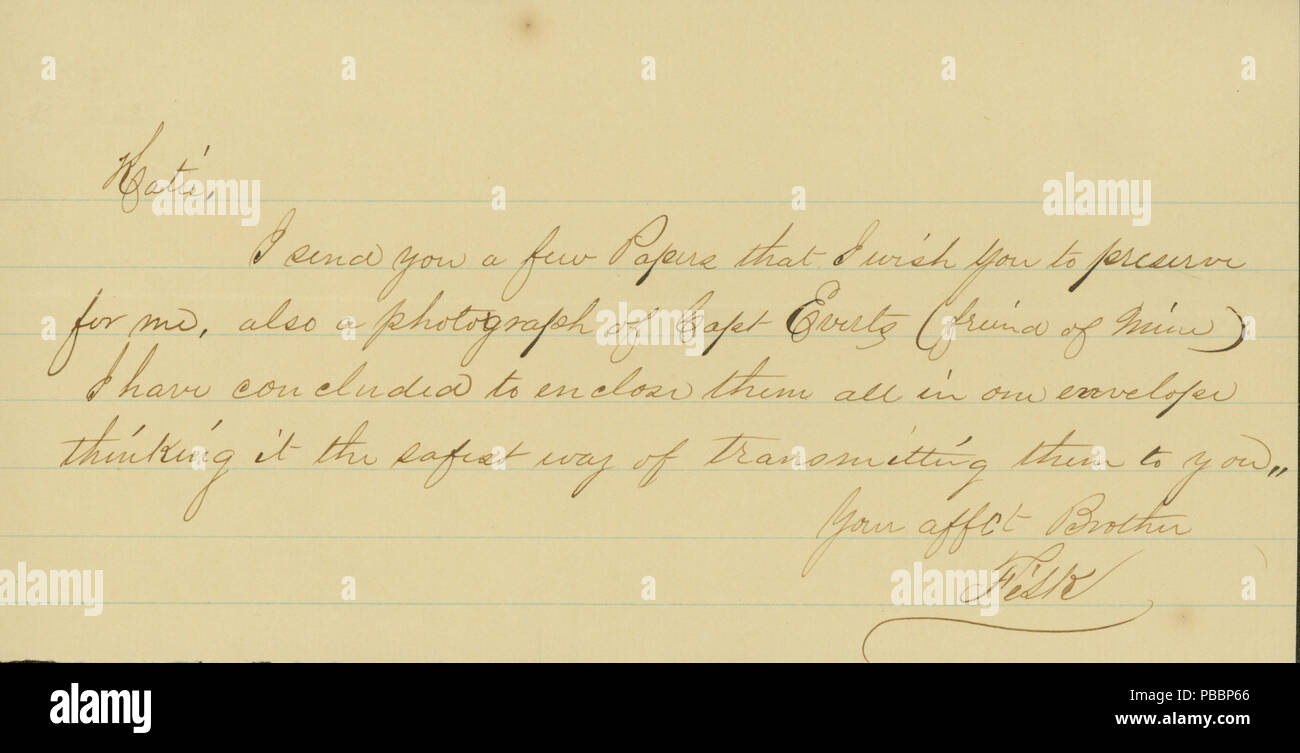 Katie,
I send you a few Papers that I wish you to preserve
for me, also a photograph of Capt Everts (friend of Mine)
I have concluded to enclose them all in one envelope
thinking it the safest way of transmitting them to you,,
Your affct Brother
Fisk
alamy
alamy
alamy
alamy
a a a a a
a a a
a a a
alamy
Image ID: PBBP66
www.alamy.com